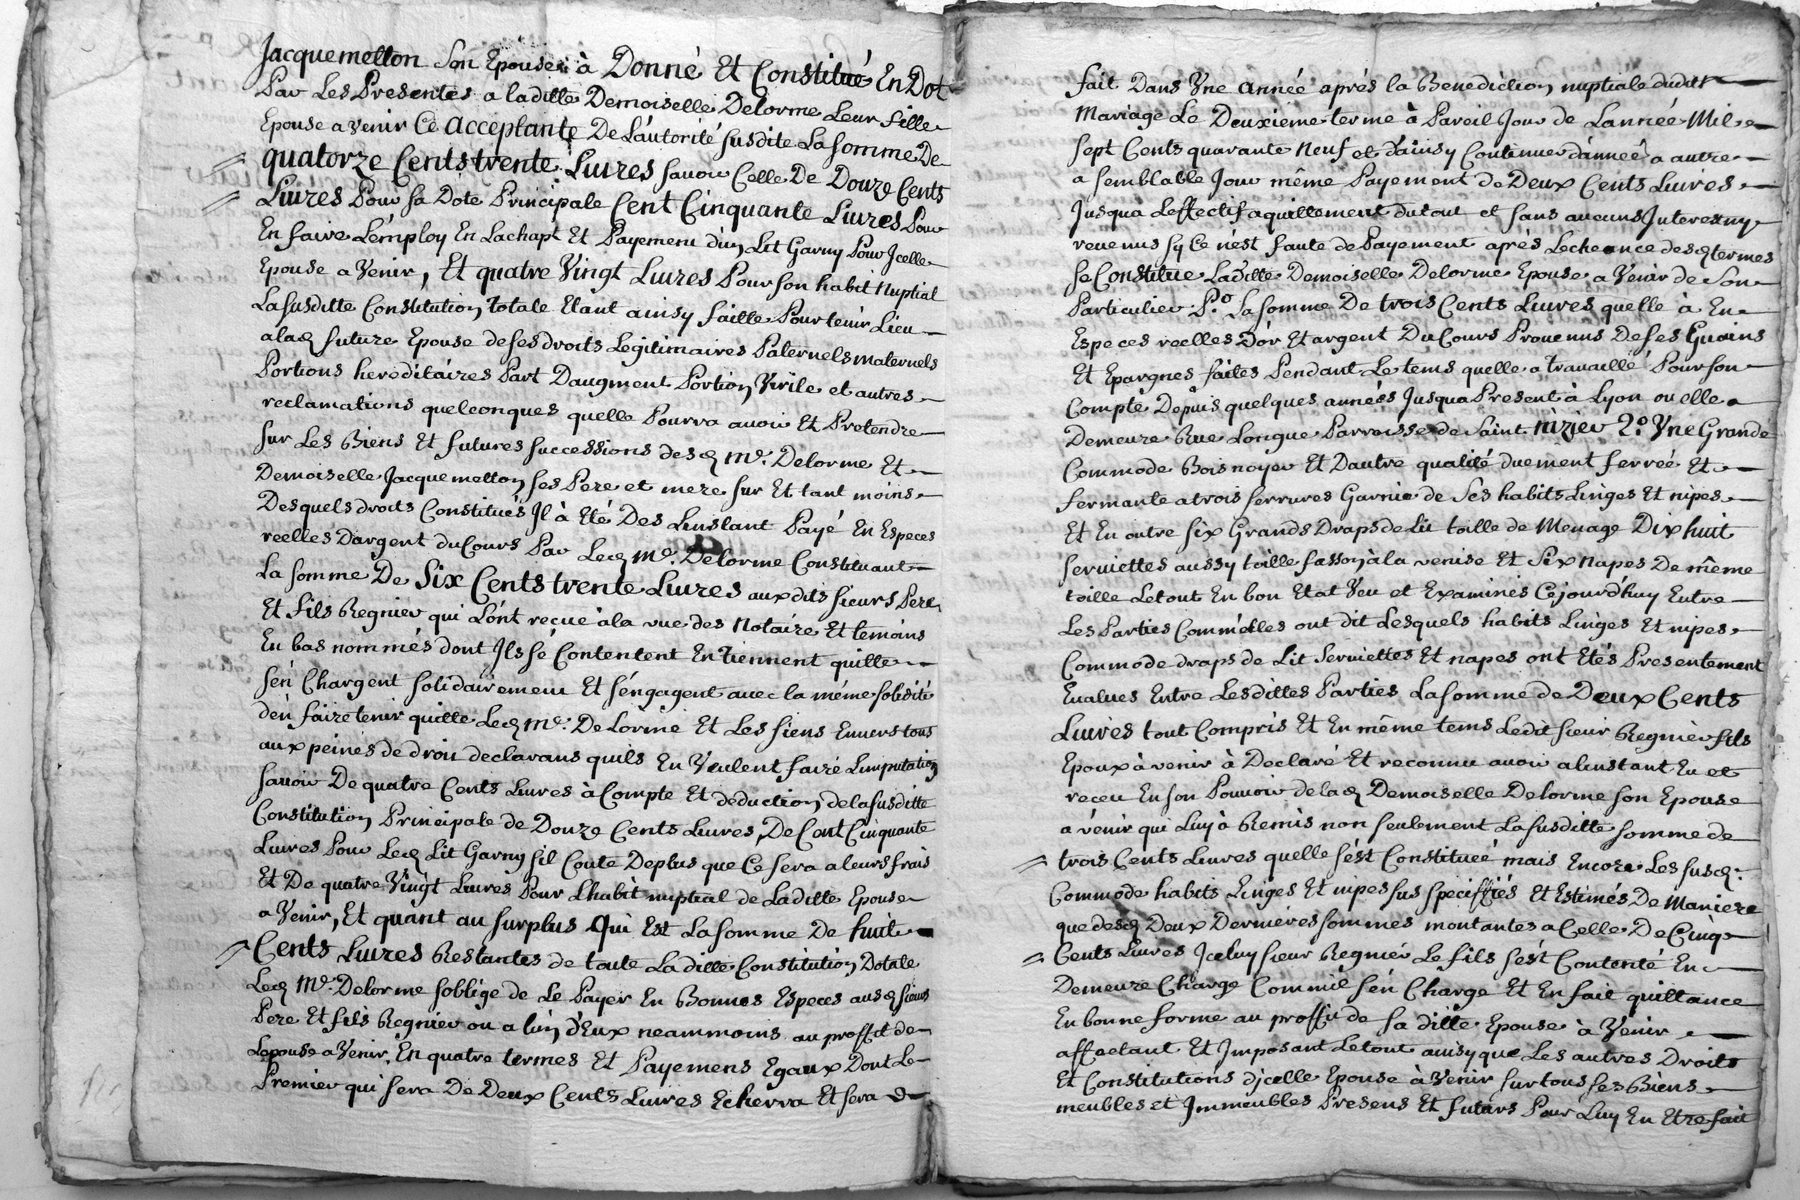 Jacquemetton Son Epouse à Donné Et Constitué En Dot
Par Les Presentes a ladille Demoiselle Delorme Leur fille
Epouse a venir Ce Acceptante De L'autorité susdite La somme De
quatorze Cents trente Livres savoir Celle De Douze Cents
Livres Pour sa Dote Principale Cent Cinquante Livres Pour
En faire L'employ En Lachapt Et Payement d'un Lit Garny Pour Jcelle
Epouse a Venir, Et quatre Vingt Livres Pour son habit Nuptial
La susditte Constitution Totale Etant ainsy faitte Pour tenir Lieu
alad future Epouse de ses droits Legitimaires Paternels maternels
Portions hereditáires Part Daugment Portion Virile et autres
reclamations quelconques quelle Pourra avoir Et Pretendre
sur Les Biens Et futures successions desd Mr. Delorme Et
Demoiselle Jacquemetton ses Pere et mere sur Et tant moins
Desquels droits Constitués Jl à Eté Des Linstant Payé En Especes
réelles D'argent du Cours Par Led Mr. Delorme Constituant
La somme De Six Cents trente Livres auxdits sieurs Pere
Et fils Regnier qui L'ont recue à la vue des Notaire Et temoins
En bas nommés dont Jls sé Contentent En Tiennent quitte
s'en Chargent solidairement Et s'éngagent avec la même solidité
d'en faire tenir quitte Led Mr. De Lorme Et Les siens Envers tous
aux peines de droit declarans quils En Veulent faire Limputation
savoir De quatre Cents Livres à Compte Et déduction de la susditte
Constitution Principale de Douze Cents Livres, De Cent Cinquante
Livres Pour Led Lit Garny sil Coute Deplus que Ce sera a leurs frais
Et De quatre Vingt Livres Pour Lhabit nuptial de Laditte Epouse
a Venir, Et quant au surplus Qui Est La somme De huit
Cents Livres Restantes de toute Laditte Constitution Dotale
Led Mr. Delorme soblige de Le Payer En Bonnes Especes ausd sieurs
Pere Et fils Regnier ou a lun d'Eux neammoins au proffit de
Lepouse a Venir En quatre termes Et Payemens Egaux Dont Le
Premier qui sera De Deux Cents Livres Echerra Et sera
fait Dans Vne Année aprés la Benediction nuptiale dudit
Mariage Le Deuxieme terme à Pareil Jour de Lannée Mil
sept Cents quarante Neuf et d'ainsy Continuer d'année a autre
a semblable Jour même Payement de Deux Cents Livres
Jusqua Leffectif aquittement du tout et sans aucuns Interest ny
revenus sy Ce n'est faute de Payement aprés Lecheance desd termes
se Constitue Laditte Demoiselle Delorme Epouse a Venir de Son
Particulier Po. La somme De trois Cents Livres quelle à En
Especes reelles D'or Et argent Du Cours Provenus De ses Guains
Et Epargnes faites Pendant Le tems quelle a travaillé Pour son
Compte Depuis quelques années Jusqua Present à Lyon ou elle
Demeure Rue Longue Parroisse de Saint Nizier 2o Vne Grande
Commode Bois noyer Et Dautre qualité duement ferrée Et
fermante a trois serrures Garnie de Ses habits Linges Et nipes
Et En outre six Grands Draps de Lit toille de Menage Dix huit
serviettes aussy toille fasson à la venise Et Six Napes De même
toille Le tout En bon Etat Veu et Examinés Cejourd'huy Entre
Les Parties Comm'elles ont dit Lesquels habits Linges Et nipes
Commode draps de Lit Serviettes Et napes ont Etés Presentement
Evalués Entre Lesdittes Parties La somme de Deux Cents
Livres tout Compris Et En même tems Ledit sieur Regnier fils
Epoux à venir à Declaré Et reconnu avoir alinstant Eu et
receu En son Pouvoir de lad Demoiselle Delorme son Epouse
a vénir qui Luy à Remis non seulement La susditte somme de
trois Cents Livres quelle s'est Constituée mais Encore Les susd.
Commode habits Linges Et nipes sus speciffiés Et Estimés De Maniere
que desd Deux Dernieres sommes montantes a Celle De Cinq
Cents Livres Jceluy sieur Regnier Le fils s'est Contenté En
Demeure Chargé Commil s'en Charge Et En fait quittance
En bonne forme au proffit de sa ditte Epouse à Venir
affectant Et Imposant Le tout ainsy que Les autres Droits
Et Constitutions djcelle Epouse à Venir sur tous ses Biens
meubles et Jmmeubles Presens Et futurs Pour Luy En Etre fait